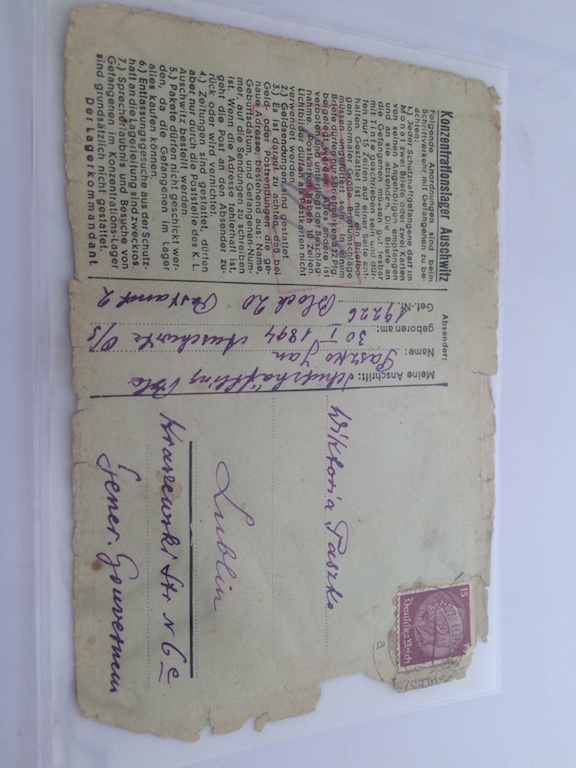 Konzentrationslager Auschwitz
Folgende Anordnungen sind beim
Schriftverkehr mit Gefangenen zu be-
achten:
1.) Jeder Schutzhaftgefangene darf im
Monat zwei Briefe oder zwei Karten
von seinen Angehörigen empfangen
und an sie absenden. Die Briefe an
die Gefangenen müssen gut lesbar
mit Tinte geschrieben sein und dür-
fen nur 15 Zeilen auf einer Seite ent-
halten. Gestattet ist nur ein Briefbo-
gen normaler Größe. Briefumschläge
müssen ungefüttert sein. In einem
Briefe dürfen nur 5 Briefmarken à 12 Pfg.
beigelegt werden. Alles andere ist
verboten und unterliegt der Beschlag-
nahme. Postkarten haben 10 Zeilen.
Lichtbilder dürfen als Postkarten nicht
verwendet werden.
2.) Geldsendungen sind gestattet.
3.) Es ist darauf zu achten, daß bei
Geld- oder Postsendungen die ge-
naue Adresse, bestehend aus: Name,
Geburtsdatum und Gefangenen-Num-
mer, auf die Sendungen zu schreiben
ist. Wenn die Adresse fehlerhaft ist,
geht die Post an den Absender zu-
rück oder wird vernichtet.
4.) Zeitungen sind gestattet, dürfen
aber nur durch die Poststelle des K. L.
Auschwitz bestellt werden.
5.) Pakete dürfen nicht geschickt wer-
den, da die Gefangenen im Lager
alles kaufen können.
6.) Entlassungsgesuche aus der Schutz-
haft an die Lagerleitung sind zwecklos.
7.) Sprecherlaubnis und Besuche von
Gefangenen im Konzentrations-Lager
sind grundsätzlich nicht gestattet.
Der Lagerkommandant.
Absender:
Meine Anschrift: Schutzhäftling Pole
Name: Paszko Jan
geboren am: 30 I 1894 Auschwitz O/S
Gef.-Nr. 19226 Block 20 Postamt 2
15
Deutsches Reich
a
Wiktoria Paszko
Lublin
Kraszewski Str. N 6c
Gener. Gouvernem